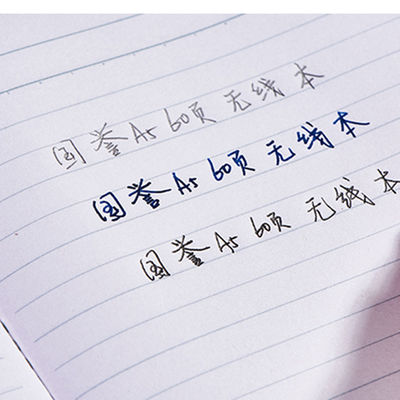 国誉A5 60页无线本
国誉A5 60页无线本
国誉A5 60页无线本